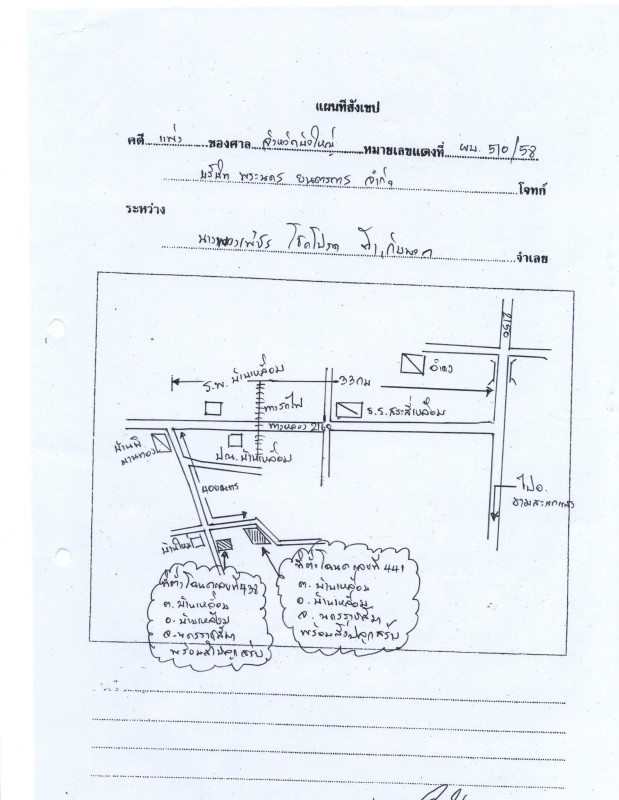 แผนที่สังเขป
คดี แพ่ง ของศาล จังหวัดบัวใหญ่ หมายเลขแดงที่ ผบ. 510/58
บริษัท พระนคร ยนตรการ จำกัด โจทก์
ระหว่าง
โชคโปรด จำเลย
2150
อำเภอ
ร.พ. บ้านเหลื่อม
33 กม
ทางรถไฟ
ร.ร.สระสี่เหลี่ยม
ทางหลวง 2160
ปณ. บ้านเหลื่อม
ไป อ.
ขามสะแกแสง
บ้านใหม่
ที่ตั้งโฉนดเลขที่ 441
ต. บ้านเหลื่อม
อ. บ้านเหลื่อม
จ. นครราชสีมา
พร้อมสิ่งปลูกสร้าง
ที่ตั้งโฉนดเลขที่ 438
ต. บ้านเหลื่อม
อ. บ้านเหลื่อม
จ. นครราชสีมา
พร้อมสิ่งปลูกสร้าง